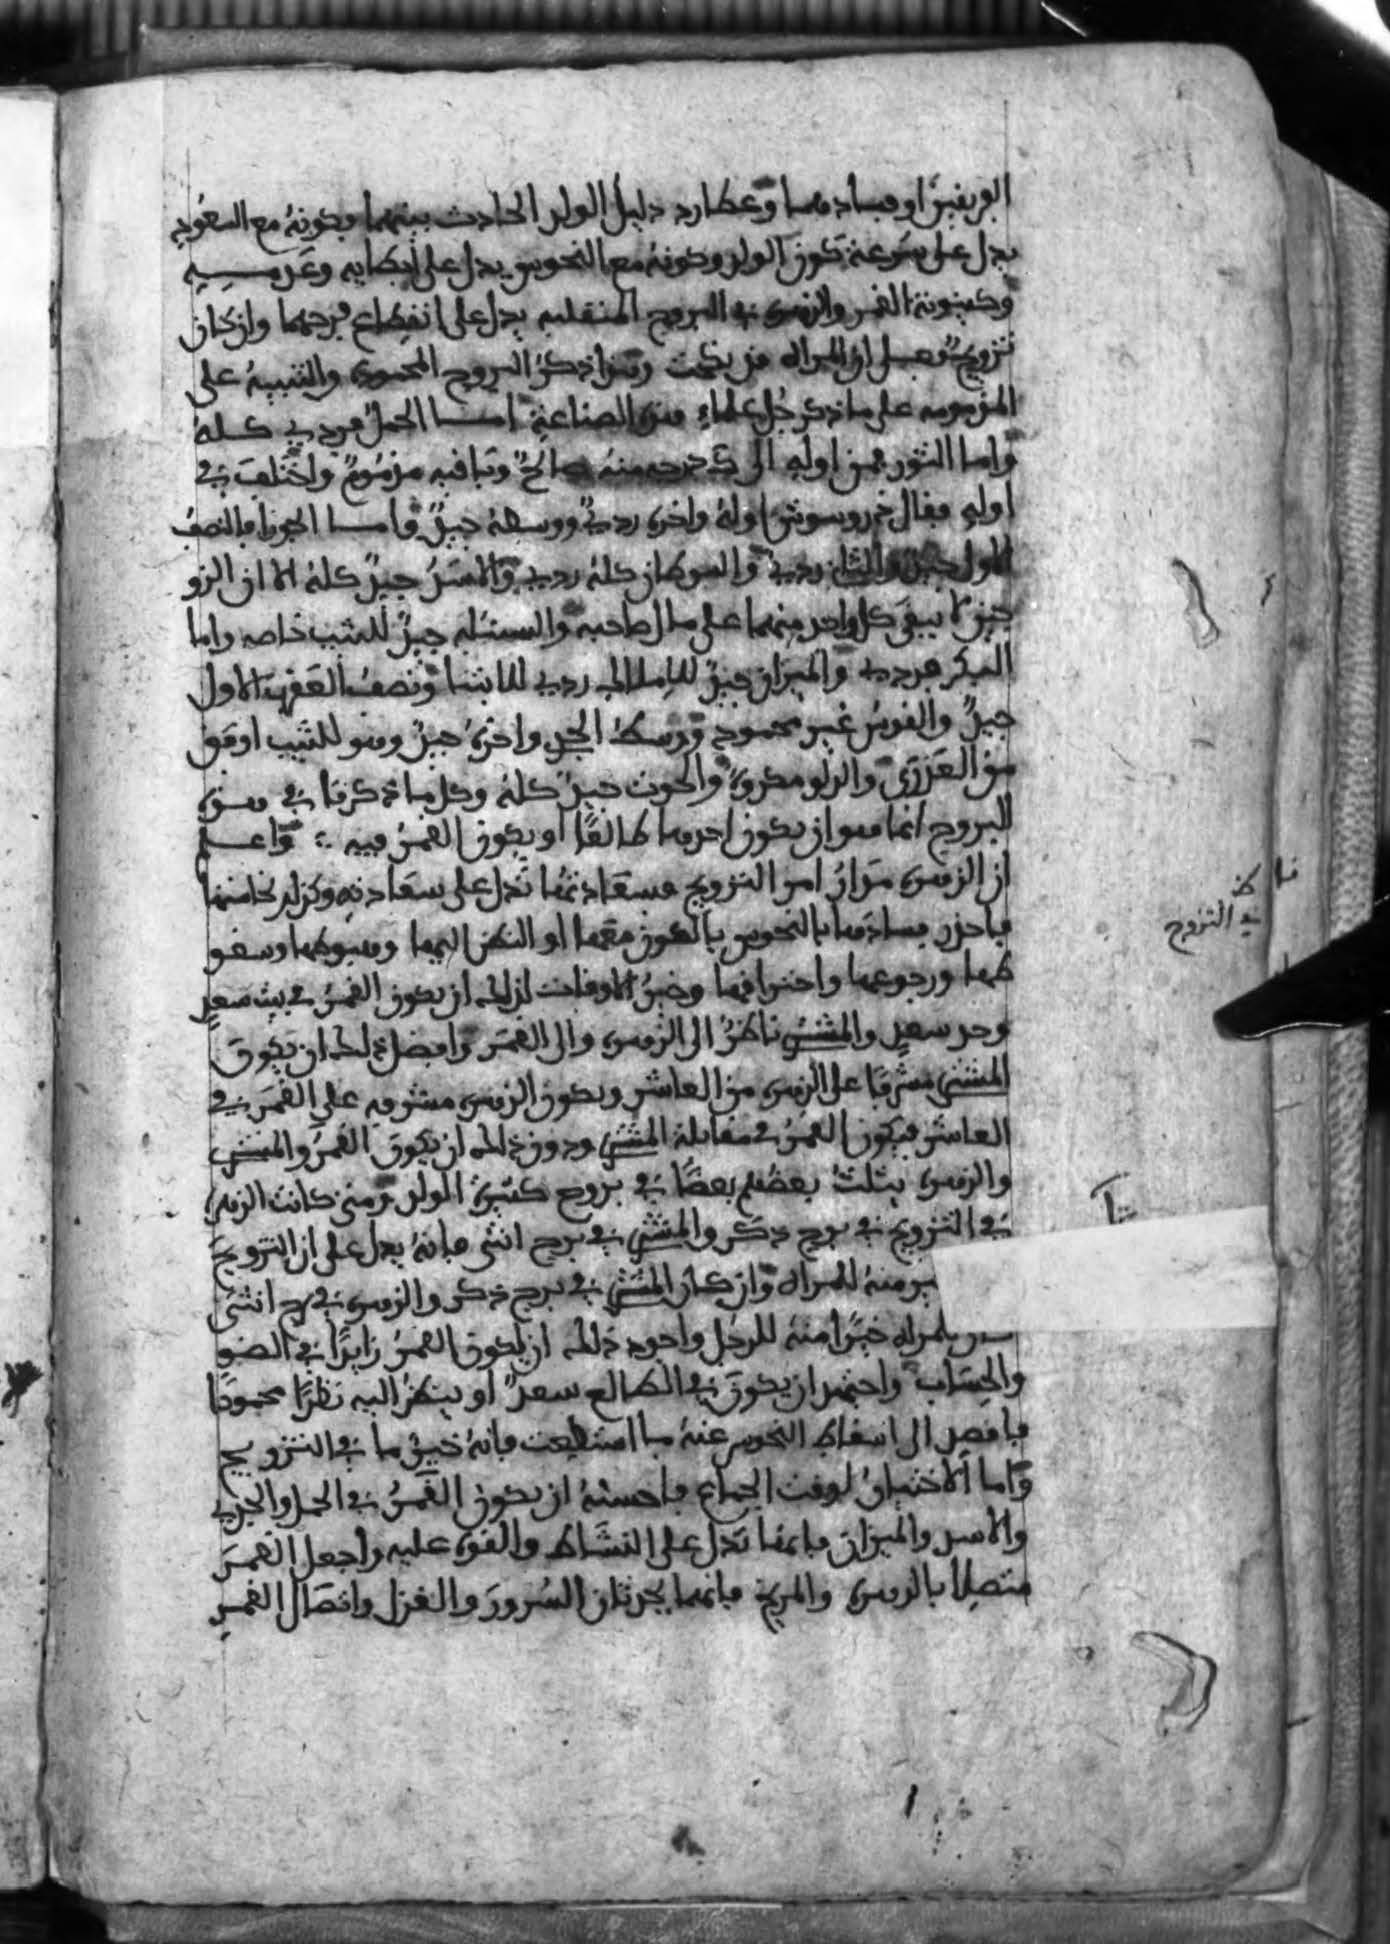 الفريقين او فسادهما وعطارد دليل الولد الحادث بينهما وكونه مع السعود
يدل على سرعة كون الولد وكونه مع النحوس يدل على ابطايه وعدمـــه
وكينونة القمر والزهرة في البروج المنقلبه يدل على انقطاع فرحهما وان كان
تزويج قبل ان المراه قد نكحت وهذا ذكر البروج المحمودة والتنبيه على
المذمومه على ما ذكر جل علماء هذه الصناعة امــا الحمل فردي كــله
واما الثور فمن اوله الى درجه منه صالح وباقيه مذموم واختلف في
اوله فقال دروسوش اوله واخره ردي ووسطه جيد وامــا الجوزا فالنصف
الاول جيد والثاني ردي والسرطان كله ردي والاسد جيد كله الا ان الزو
جين لا يبقى كل واحد منهما على مال صاحبه والسنبله جيد للثيب خاصه واما
البكر فردي والميزان جيد ردي ونصف العقرب الاول
جيد والقوس غير محمود ووسط الجدي واخره جيد وهو للثيب اوفق
من العذرى والدلو مكروه والحوت جيد كله وكل ما ذكرنا في هــذه
البروج انما هو ان يكون احدها طالعًا او يكون القمر فيه ∴ واعــلم
ان الزهرة مدار امر التزويج فسعادتها تدل على سعادته وكذلك نحاستها
فاحذر فسادها بالنحوس بالكون معها او النظر اليها وهبوطها وسقو
طها ورجوعها واحتراقها وخير الاوقات لذلك ان يكون القمر في بيت سعد
وحد سعد والمشتري ناظر الى الزهرة والى القمر وافضل ذلك ان يكون
المشتري مشرفًا على الزهرة من العاشر ويكون الزهرة مشرفه على القمر في
العاشر فيكون القمر في مقابلة المشتري ودون ذلك ان يكون القمر والمشتري
والزهرة يثلث بعضهم بعضًا في بروج كثيرة الولد ومتى كانت الزهرة
في التزويج في برج ذكر والمشتري في برج انثى فانه يدل على ان التزويج
منه للمراه وان كان المشتري في برج ذكر والزهرة في برج انثى
للمراه خيرًا منه للرجل واجود ذلك ان يكون القمر زايدًا في الضو
والحساب واجتهد ان يكون في الطالع سعد او ينظر اليه نظرًا محمودًا
فاقصد الى اسقاط النحوس عنه ما استطعت فانه خير ما في التزويج
واما الاختيار لوقت الجماع فاحسنه ان يكون القمر في الحمل والجدي
والاسد والميزان فانها تدل على النشاط والقوة عليه واجعل القمر
متصلا بالزهرة والمريخ فانهما يحدثان السرور والغزل واتصال القمر
في التزوج